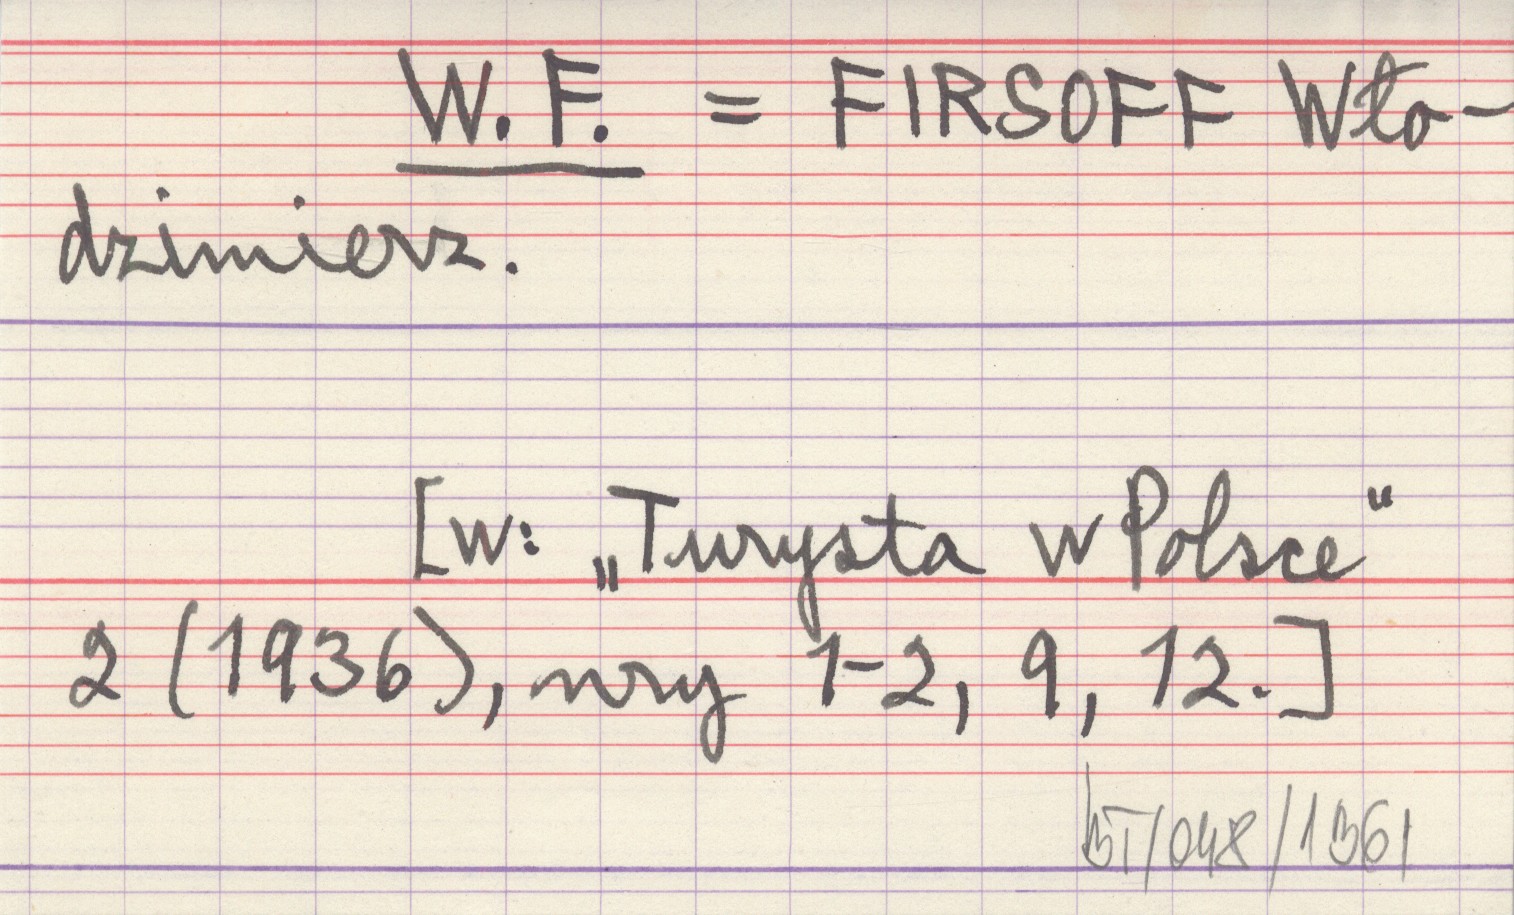 W. F. = FIRSOFF Wło-
dzimierz.
[w: „Turysta w Polsce“
2 (1936), nry 1-2, 9, 12.]